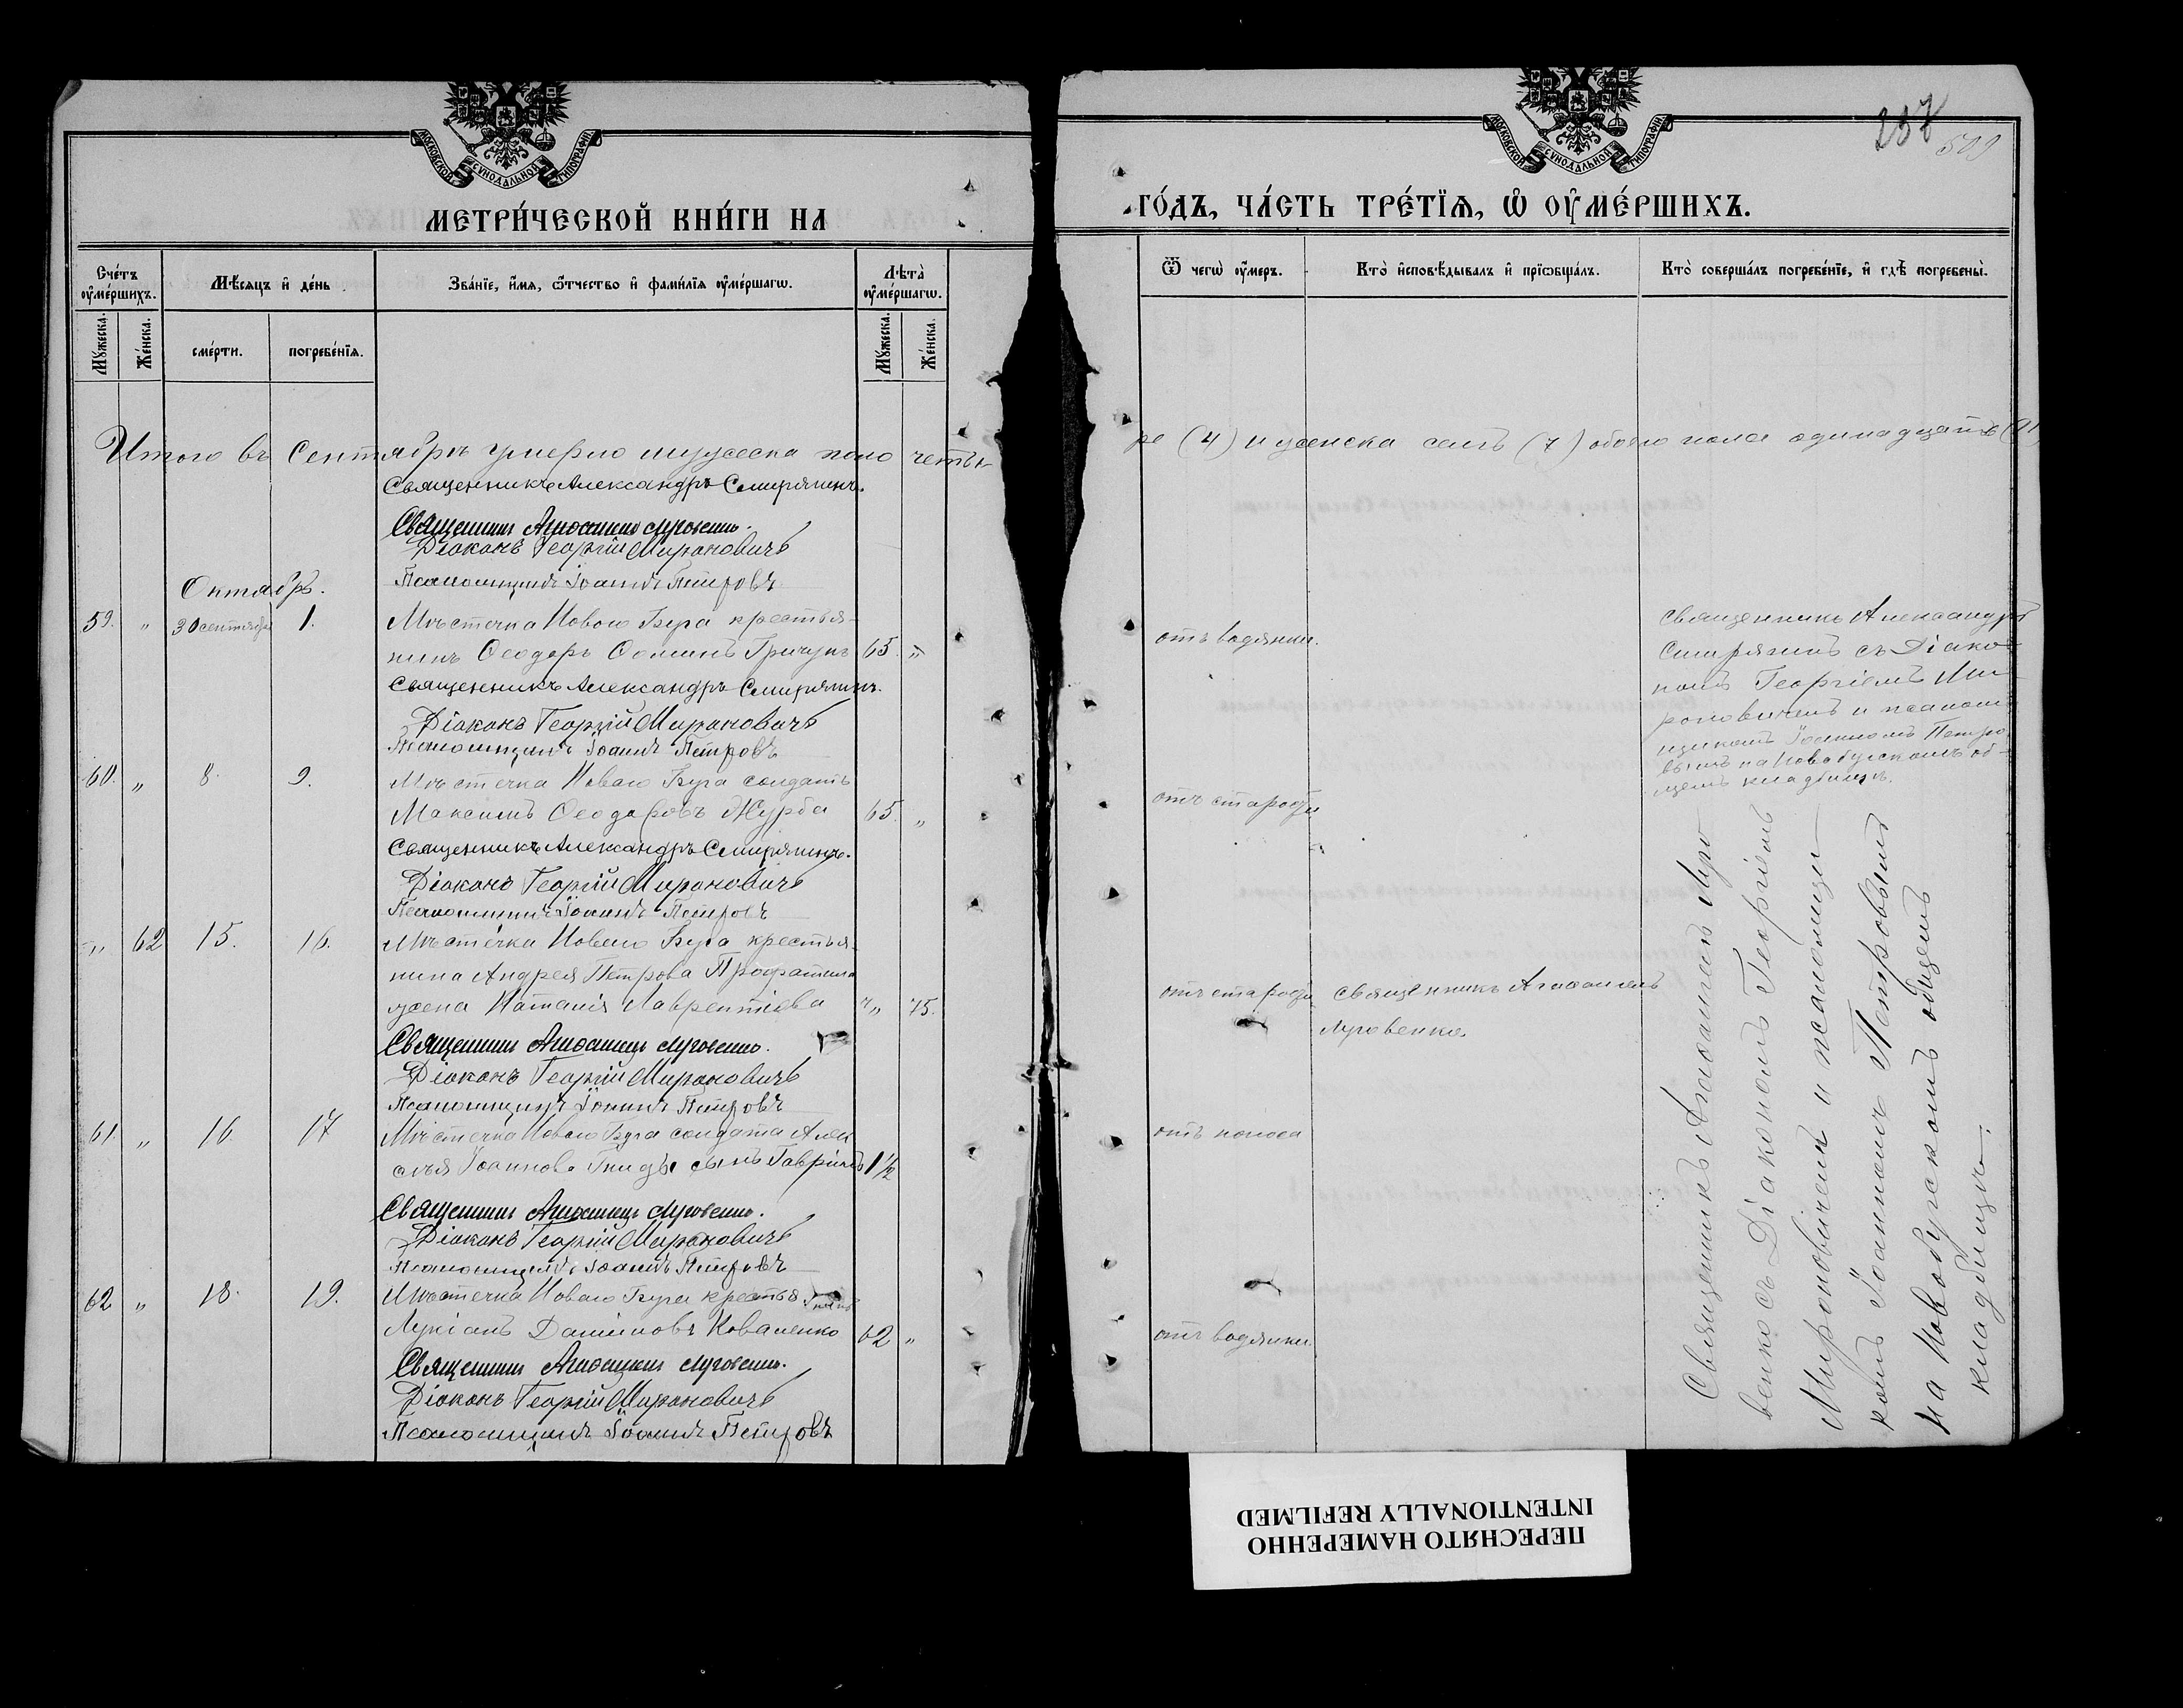 МОСКОВСКОЙ СѴНОДАЛЬНОЙ ТИПОГРАФІИ
МЕТРИ́ЧЕСКОЙ КНИ́ГИ НА
Сче́тъ ᲂу҆ме́ршихъ.
Мѣ́сяцъ и҆ де́нь
Зва́нїе, и҆́мя, ѻ҆́тчество и҆ фамі́лїя ᲂу҆ме́ршагѡ.
Лѣ́та ᲂу҆ме́ршагѡ.
Мꙋ́жеска.
Же́нска.
сме́рти.
погребе́нїя.
Мꙋ́жеска.
Же́нска.
Итого въ Сентябрѣ умерло мужеска поло четы
Священникъ Александръ Смирягинъ.
Священникъ Агаѳангелъ Луговенко.
Діаконъ Георгій Мироновичъ
Псаломщикъ Іоаннъ Петровъ
Октябрь.
59. " 30 сентября 1. Мѣстечка Новаго Буга крестья-
нинъ Ѳеодоръ Ѳоминъ Гричунъ 65. "
Священникъ Александръ Смирягинъ.
Діаконъ Георгій Мироновичъ
Псаломщикъ Іоаннъ Петровъ
60. " 8. 9. Мѣстечка Новаго Буга солдатъ
Максимъ Ѳеодоровъ Журба 65. "
Священникъ Александръ Смирягинъ.
Діаконъ Георгій Мироновичъ
Псаломщикъ Іоаннъ Петровъ
" 62 15. 16. Мѣстечка Новаго Буга крестья-
нина Андрея Петрова
жена Наталія Лаврентіева " 75.
Священникъ Агаѳангелъ Луговенко.
Діаконъ Георгій Мироновичъ
Псаломщикъ Іоаннъ Петровъ
61. " 16. 17 Мѣстечка Новаго Буга солдата Алек
сѣя Іоаннова Гниды сынъ Гавріилъ 1½
Священникъ Агаѳангелъ Луговенко.
Діаконъ Георгій Мироновичъ
Псаломщикъ Іоаннъ Петровъ
62 " 18. 19. Мѣстечка Новаго Буга крестьянинъ
Лукіанъ Даніиловъ Коваленко 62 "
Священникъ Агаѳангелъ Луговенко.
Діаконъ Георгій Мироновичъ
Псаломщикъ Іоаннъ Петровъ
МОСКОВСКОЙ СѴНОДАЛЬНОЙ ТИПОГРАФІИ
237
509
ГО́ДЪ, ЧА́СТЬ ТРЕ́ТЇѦ, Ѡ҆ ОУ҆МЕ́РШИХЪ.
Ѿ чегѡ̀ ᲂу҆́меръ.
Кто̀ и҆сповѣ́дывалъ и҆ прїѡбща́лъ.
Кто̀ соверша́лъ погребе́нїе, и҆ гдѣ̀ погребены̀.
ре (4) и женска семь (7) обоего пола одинадцать (11)
отъ водянки.
Священникъ Александръ
Смирягинъ съ Діако-
номъ Георгіемъ Ми-
роновичемъ и псалом-
щикомъ Іоанномъ Петро-
вымъ на Новобугскомъ об-
щемъ кладбищѣ.
отъ старости
отъ старости Священникъ Агаѳангелъ
Луговенко.
отъ поноса
отъ водянки
Священникъ Агаѳангелъ Луго
венко съ Діакономъ Георгіемъ
Мироновичемъ и псаломщи-
комъ Іоанномъ Петровымъ
на Новобугскомъ общемъ
кладбищѣ.
ПЕРЕСНЯТО НАМЕРЕННО
INTENTIONALLY REFILMED